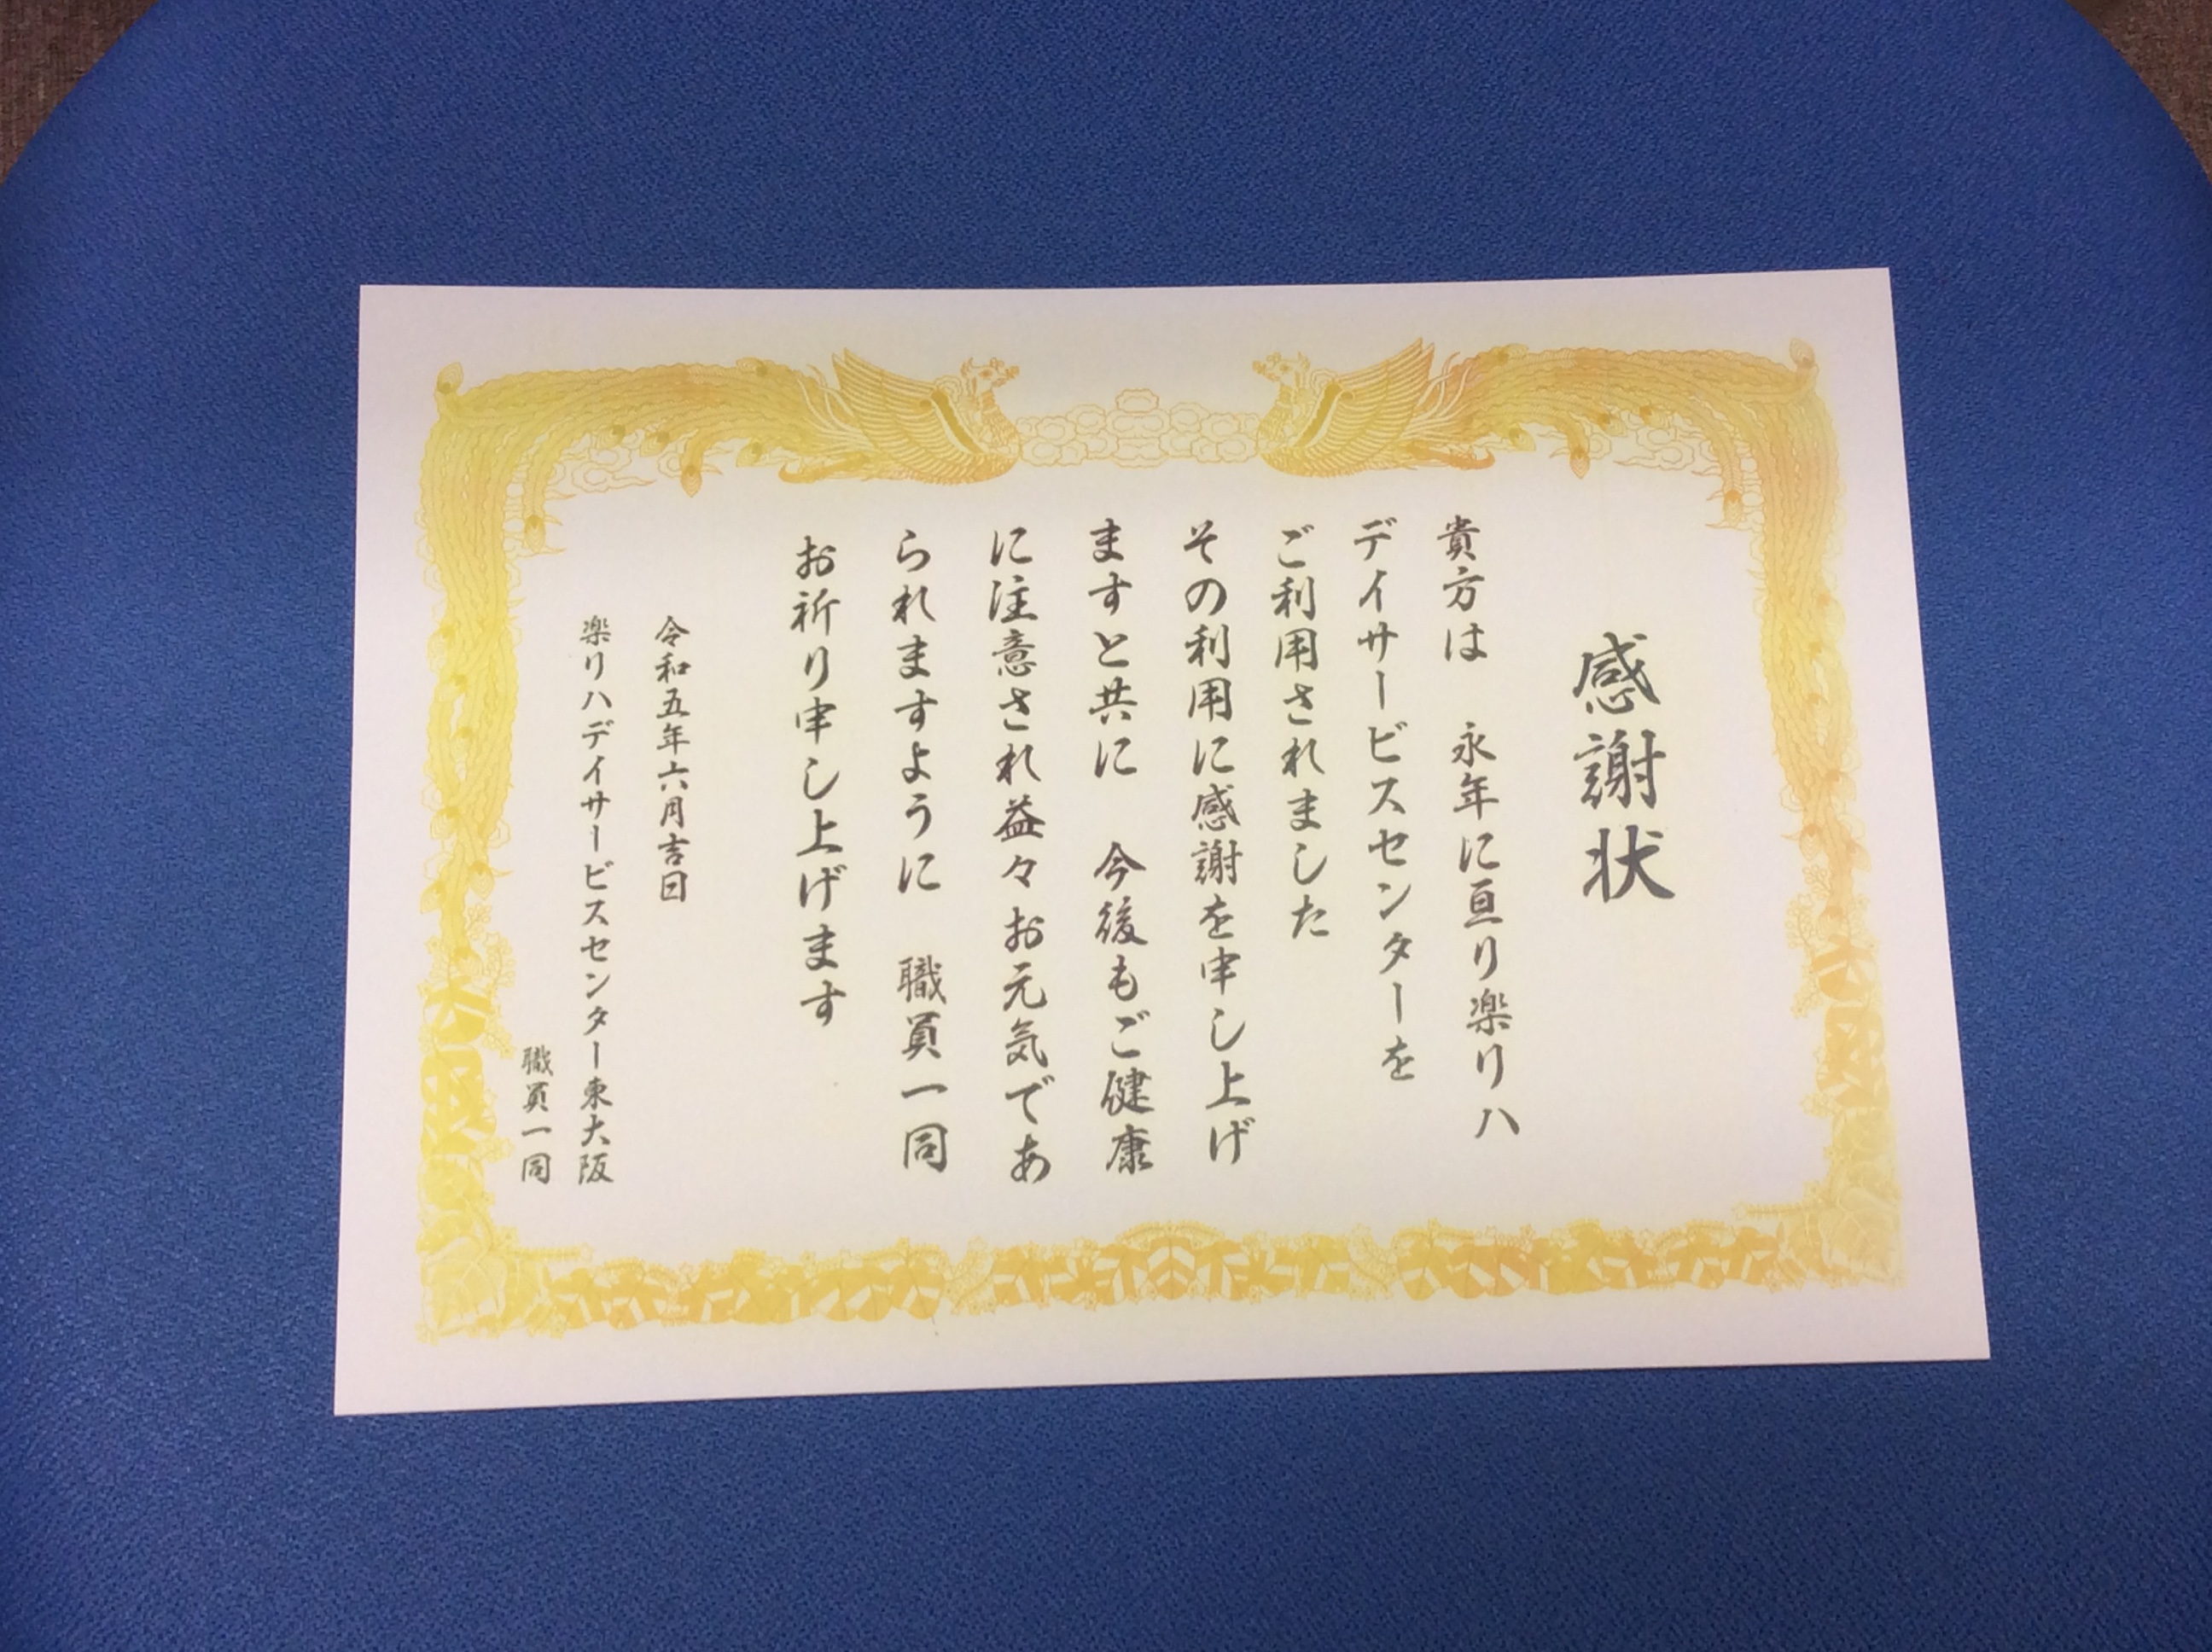 感謝状
貴方は　永年に亘り楽リハ
デイサービスセンターを
ご利用されました
その利用に感謝を申し上げ
ますと共に　今後もご健康
に注意され益々お元気であ
られますように　職員一同
お祈り申し上げます
令和五年六月吉日
楽リハデイサービスセンター東大阪
職員一同